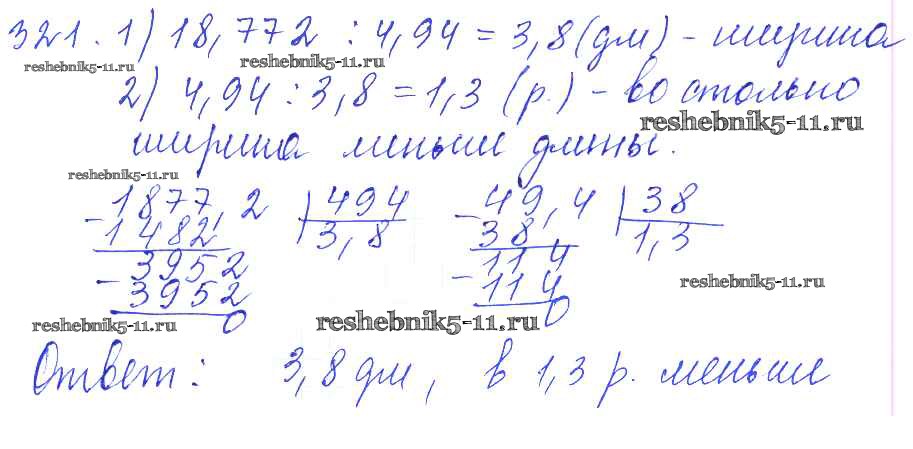 321. 1) 18,772 : 4,94 = 3,8 (дм) - ширина
reshebnik5-11.ru reshebnik5-11.ru
2) 4,94 : 3,8 = 1,3 (р.) - во стольно
reshebnik5-11.ru
ширина меньше длины.
reshebnik5-11.ru
- 1877,2 | 494 - 49,4 | 38
1482 3,8 38 1,3
- 3952 - 114
3952 114
reshebnik5-11.ru
0 0
reshebnik5-11.ru reshebnik5-11.ru
Ответ: 3,8 дм, в 1,3 р. меньше